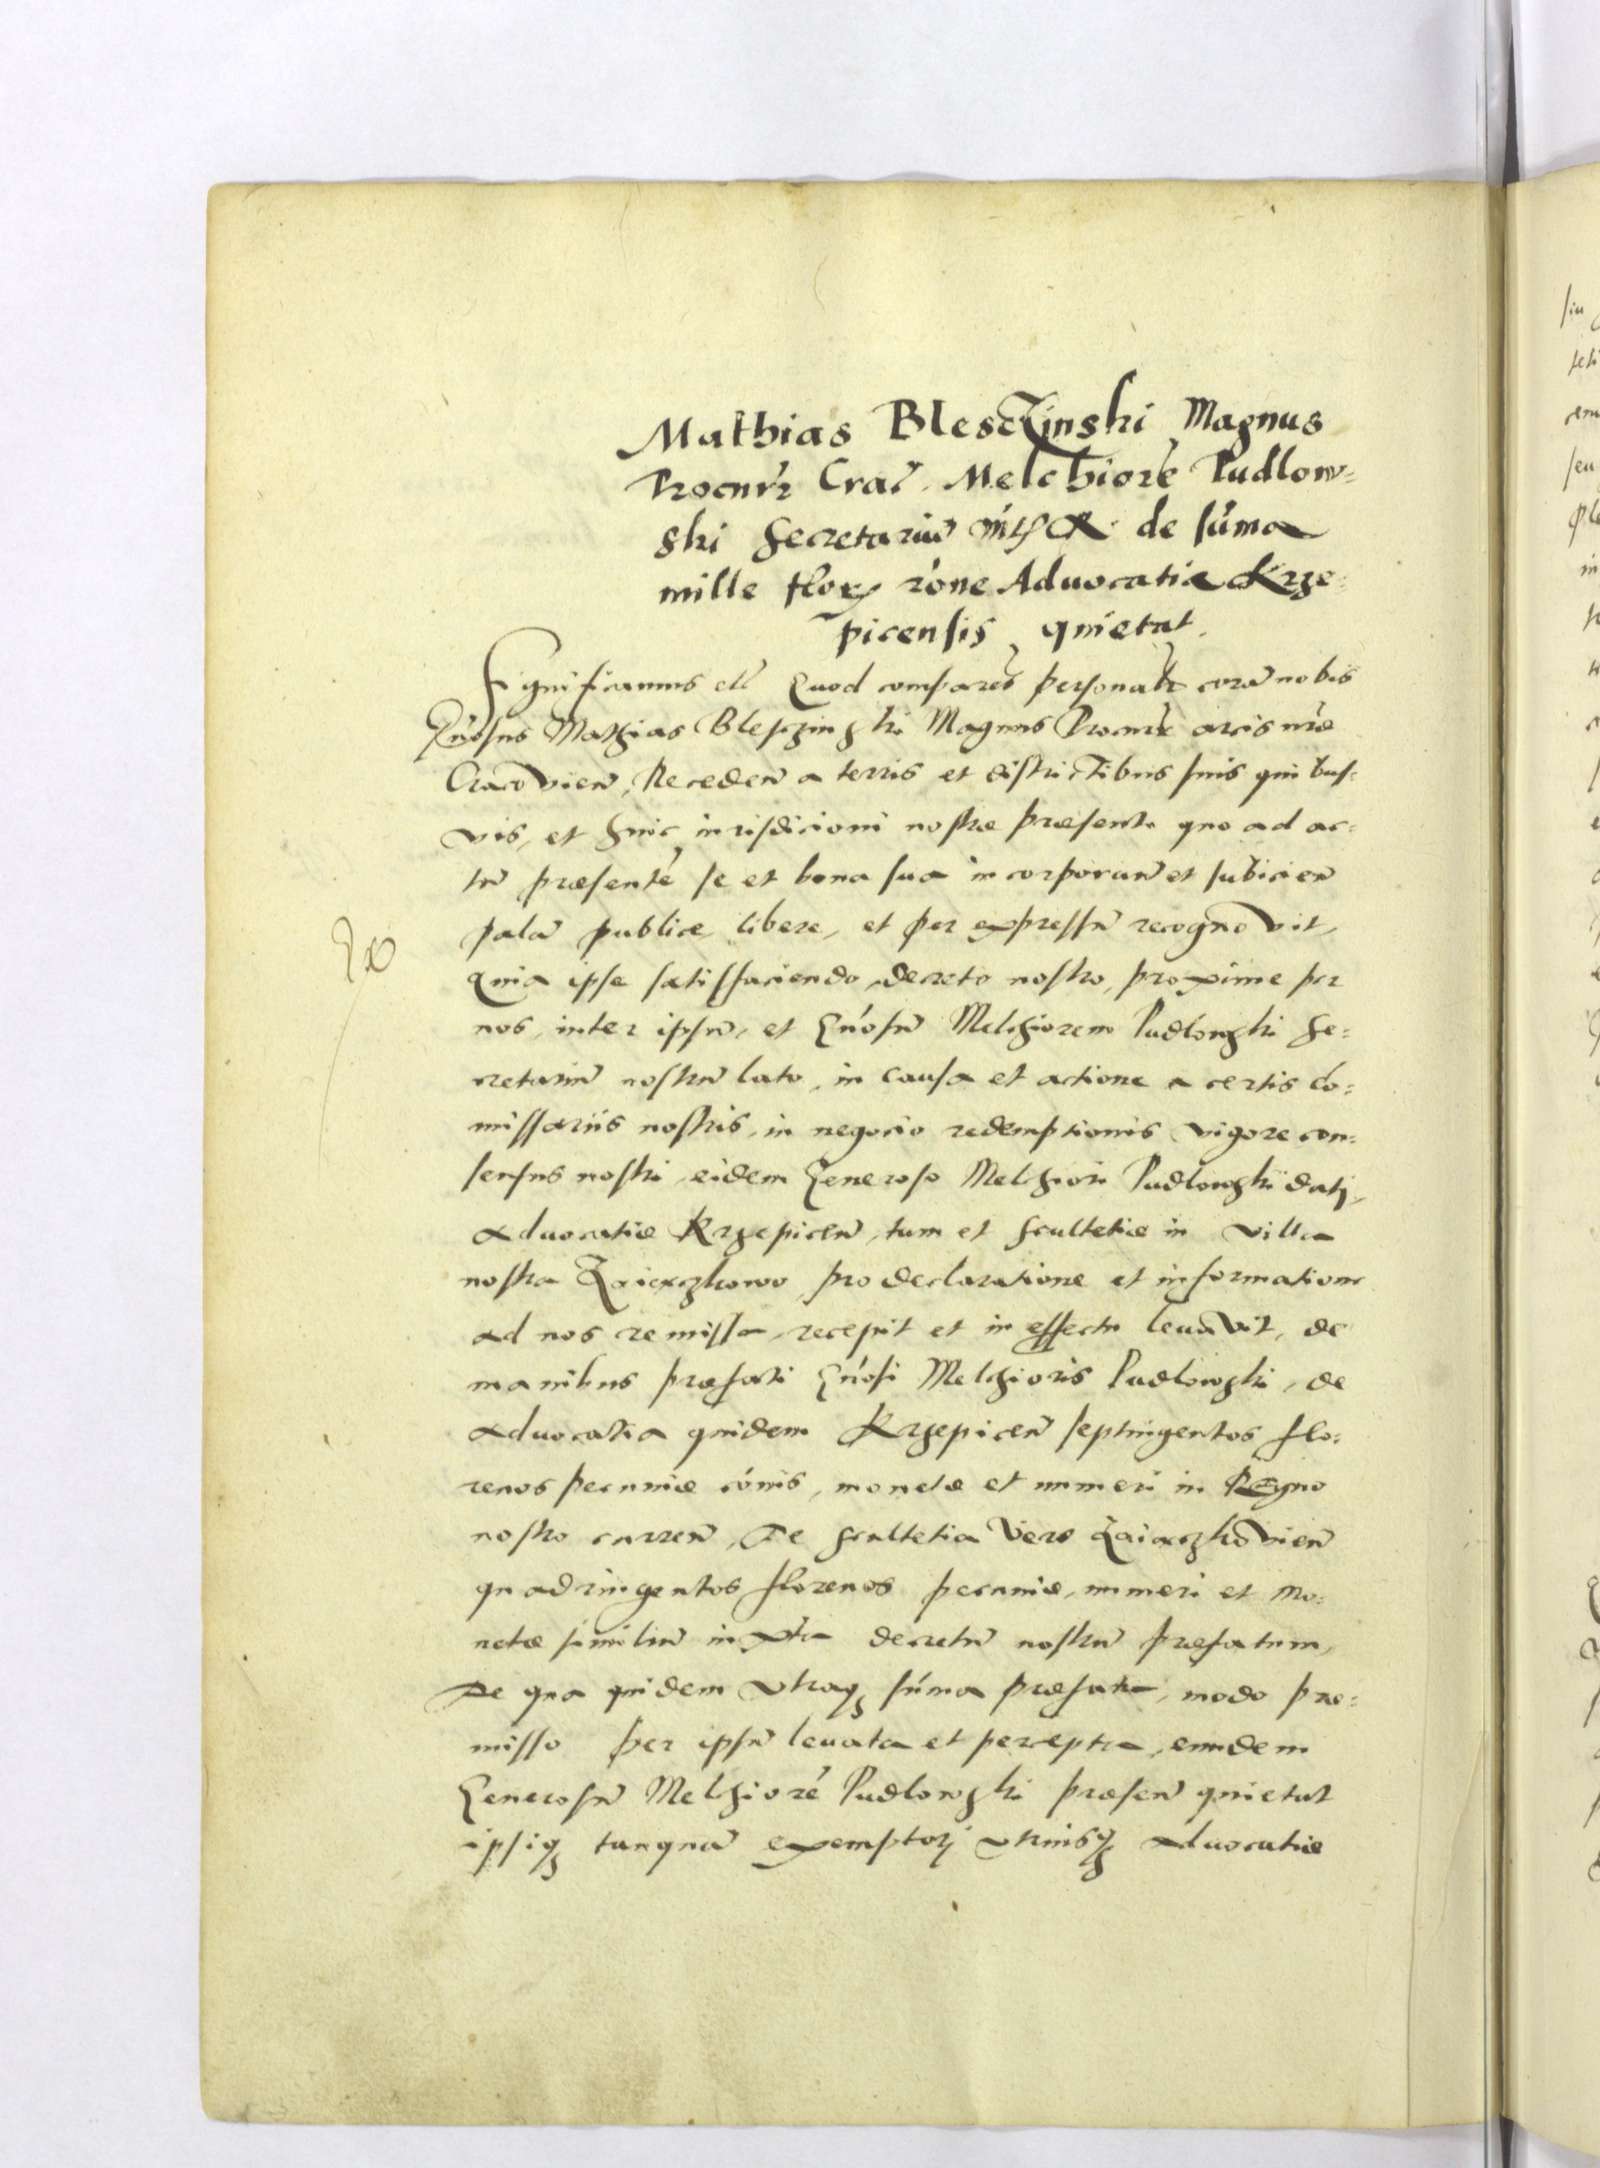 Mathias Blesczinski Magnus
Procur̃r Crac̃. Melchiorẽ Pudlow=
ski Secretariũ Mts R. de sũma
mille floꝝ rõne Advocatiæ Krze=
picensis quietat.
Significamus etc̃ Quod comparẽs personałr corã nobis
Gñosus Mathias Blesczinski Magnus Procurr̃ arcis nr̃æ
Cracovieñ, Recedeñ a terris et districtibus suis quibus=
vis, et huic iurisdicioni nostræ præsenti quo ad ac=
tũ præsentẽ se et bona sua incorporañ et subicieñ
palã publice, libere, et per expressũ recognovit,
Quia ipse satisfaciendo decreto nostro, proxime per
nos, inter ipsũ, et Gñosũ Melchiorem Pudlowski Se=
cretariũ nostrũ lato, in causa et actione a certis Co=
missariis nostris, in negocio redemptionis vigore con=
sensus nostri eidem Generoso Melchiori Pudlowski dati,
Advocatiæ Krzepiceñ, tum et scultetiæ in villa
nostra Zaiaczkowo, pro declaratione et informatione
ad nos remissa, recepit et in effectu levavit, de
manibus præfati Gñosi Melchioris Pudlowski, de
Advocatia quidem Krzepiceñ septingentos flo=
renos pecuniæ cõmis, monetæ et numeri in Regno
nostro curreñ, De scultetia vero Zaiaczkovieñ
quadringentos florenos pecuniæ, numeri et mo=
netæ similiũ iuxta decretũ nostrũ præfatum,
De qua quidem utraqꝫ sũma præfata, modo præ=
misso per ipsũ levata et percepta, eundem
Generosũ Melchiorẽ Pudlowski præseñ quietat
ipsiqꝫ tanquã exemptori utriusqꝫ advocatiæ